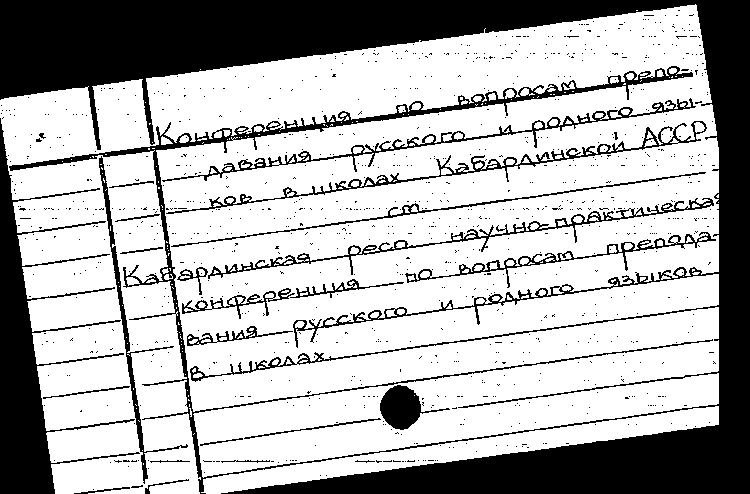 Конференция по вопросам препо-
давания русского и родного язы-
ков в школах Кабардинской АССР
см.
Кабардинская респ. научно-практическая
конференция по вопросам препода-
вания русского и родного языков
в школах.